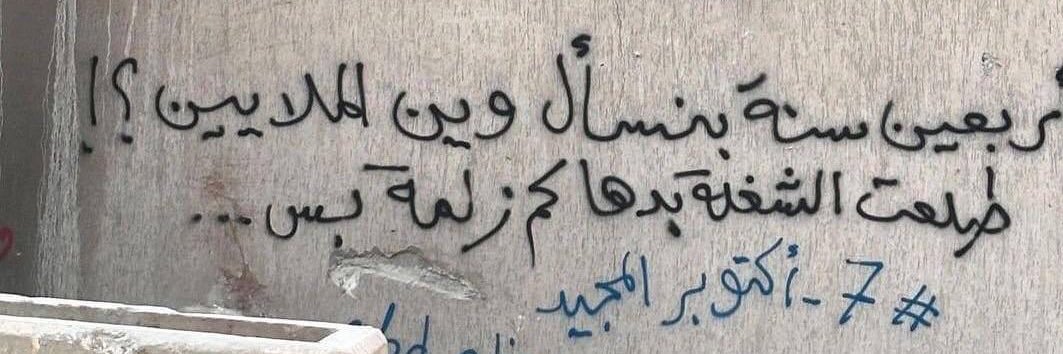 أربعين سنة بنسأل وين الملايين؟!
طلعت الشغلة بدها كم زلمة بس...
# 7 - أكتوبر المجيد